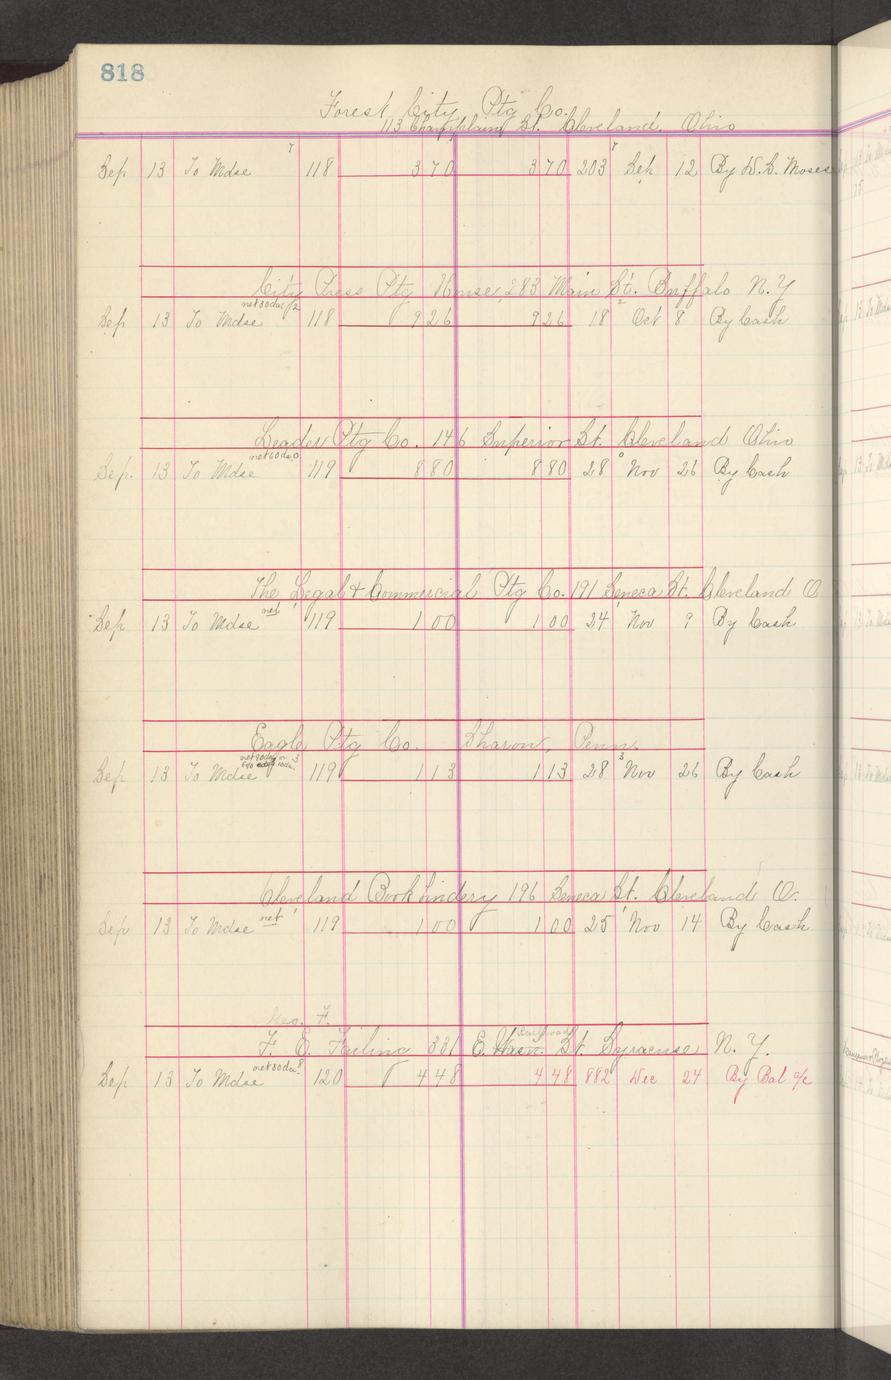 818
Forest City Ptg Co.
113 Champlain St. Cleveland, Ohio
Sep 13 To Mdse 7 118 3 70 3 70 203 7 Sep 12 By W. S. Moses
City Press Ptg House, 283 Main St. Buffalo N. Y
Sep 13 To Mdse net 30 das 118 9 26 9 26 18 2 Oct 8 By Cash
Leader Ptg Co. 146 Superior St. Cleveland Ohio
Sep. 13 To Mdse net 60 das 0 119 8 80 8 80 28 0 Nov 26 By Cash
The Legal & Commercial Ptg Co. 191 Seneca St. Cleveland O
Sep 13 To Mdse net 119 1 00 1 00 24 Nov 9 By Cash
Eagle Ptg Co. Sharon, Penn.
Sep 13 To Mdse 3 119 1 13 1 13 28 3 Nov 26 By Cash
Cleveland Book bindery 196 Seneca St. Cleveland O.
Sep 13 To Mdse net 119 1 00 1 00 25 Nov 14 By Cash
Geo. F.
F. E. Failing 331 E. Wash. St. Syracuse N. Y.
Sep 13 To Mdse net 30 das 8 120 4 48 4 48 882 Dec 24 By Bal a/c